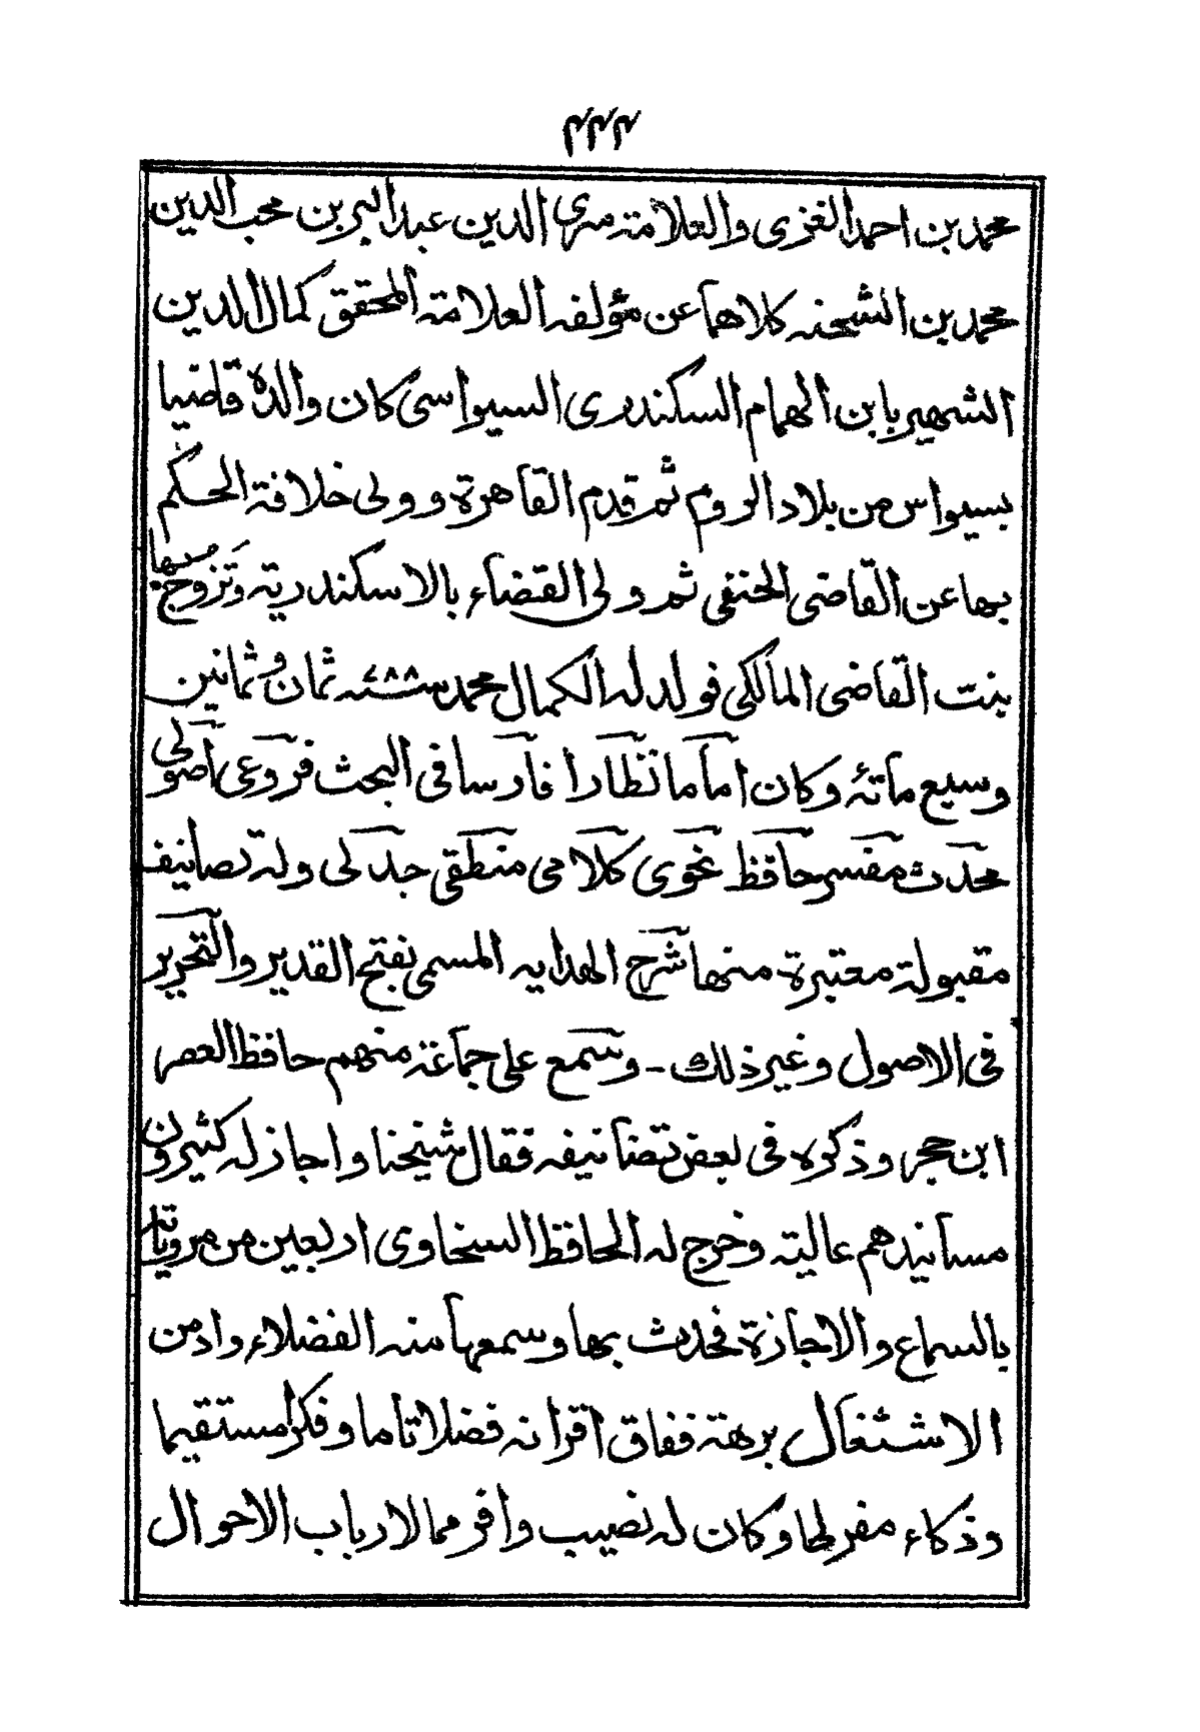 ٢٢٢
محمد بن احمد الغزى والعلامة سرى الدين عبد البر بن محب الدين
محمد بن الشحنه كلاهما عن مؤلفه العلامة المحقق كمال الدين
الشهير بابن الهمام السكندرى السيواسى كان والده قاضيا
بسيواس من بلاد الروم ثم قدم القاهرة وولى خلافة الحكم
بها عن القاضى الحنفى ثم ولى القضاء بالاسكندرية وتزوج بها
بنت القاضى المالكى فولد له الكمال محمد سنة ٧٨٨ ثمان وثمانين
وسبع مأتة وكان اماما نظارا فارسا فى البحث فروعى اصولى
محدث مفسر حافظ نحوى كلامى منطقى جدلى وله تصانيف
مقبولة معتبرة منها شرح الهدايه المسمى بفتح القدير والتحرير
فى الاصول وغير ذلك - وسمع على جماعة منهم حافظ العصر
ابن حجر وذكره فى بعض تصانيفه فقال شيخنا واجاز له كثيرون
مسانيدهم عالية وخرج له الحافظ السخاوى اربعين من مروياته
بالسماع والاجازة فحدث بها وسمعها منه الفضلاء وادمن
الاشتغال برهة ففاق اقرانه فضلا تاما وفكرا مستقيما
وذكاء مفرطا وكان له نصيب وافر مما لارباب الاحوال